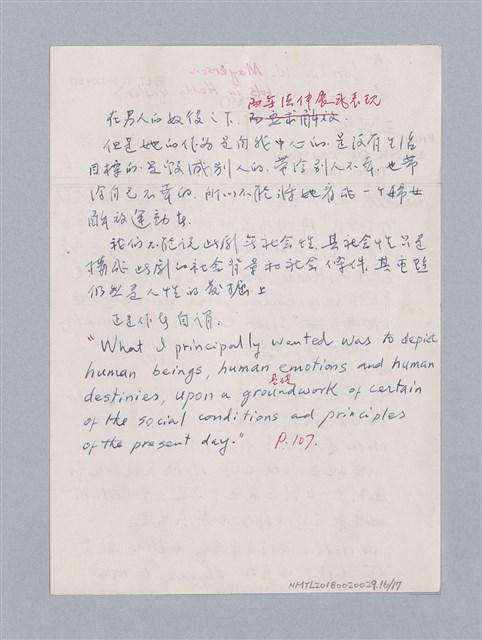 而無法伸展或表現
在男人的奴役之下, 而要求解放.
但是她的作為是自我中心的. 是沒有生活
目標的. 是毀滅別人的. 帶給別人不幸. 也帶
給自己不幸的. 所以不能將她看成一个婦女
解放運動者.
我們不能說此劇無社會性. 其社會性只是
構成此劇的社會背景和社會條件. 其重點
仍然是人性的發掘上
正是作者自謂.
"What I principally wanted was to depict
human beings, human emotions and human
destinies, upon a groundwork of certain
of the social conditions and principles
of the present day." P.107.
NMTL20180020029.16/17